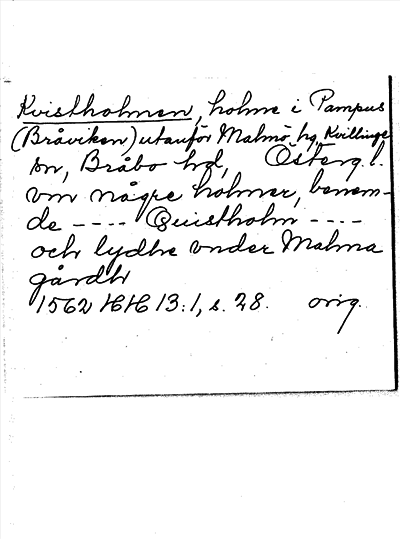 Kvistholmen, holme i Pampus
(Bråviken) utanför Malmö hg, Kvillinge
sn, Bråbo hd, Österg.l.
vm någre holmer, benem-
de ---- Quistholm ----
och lydhe vnder Malma
gårdh
1562 HH 13:1, s. 28. orig.